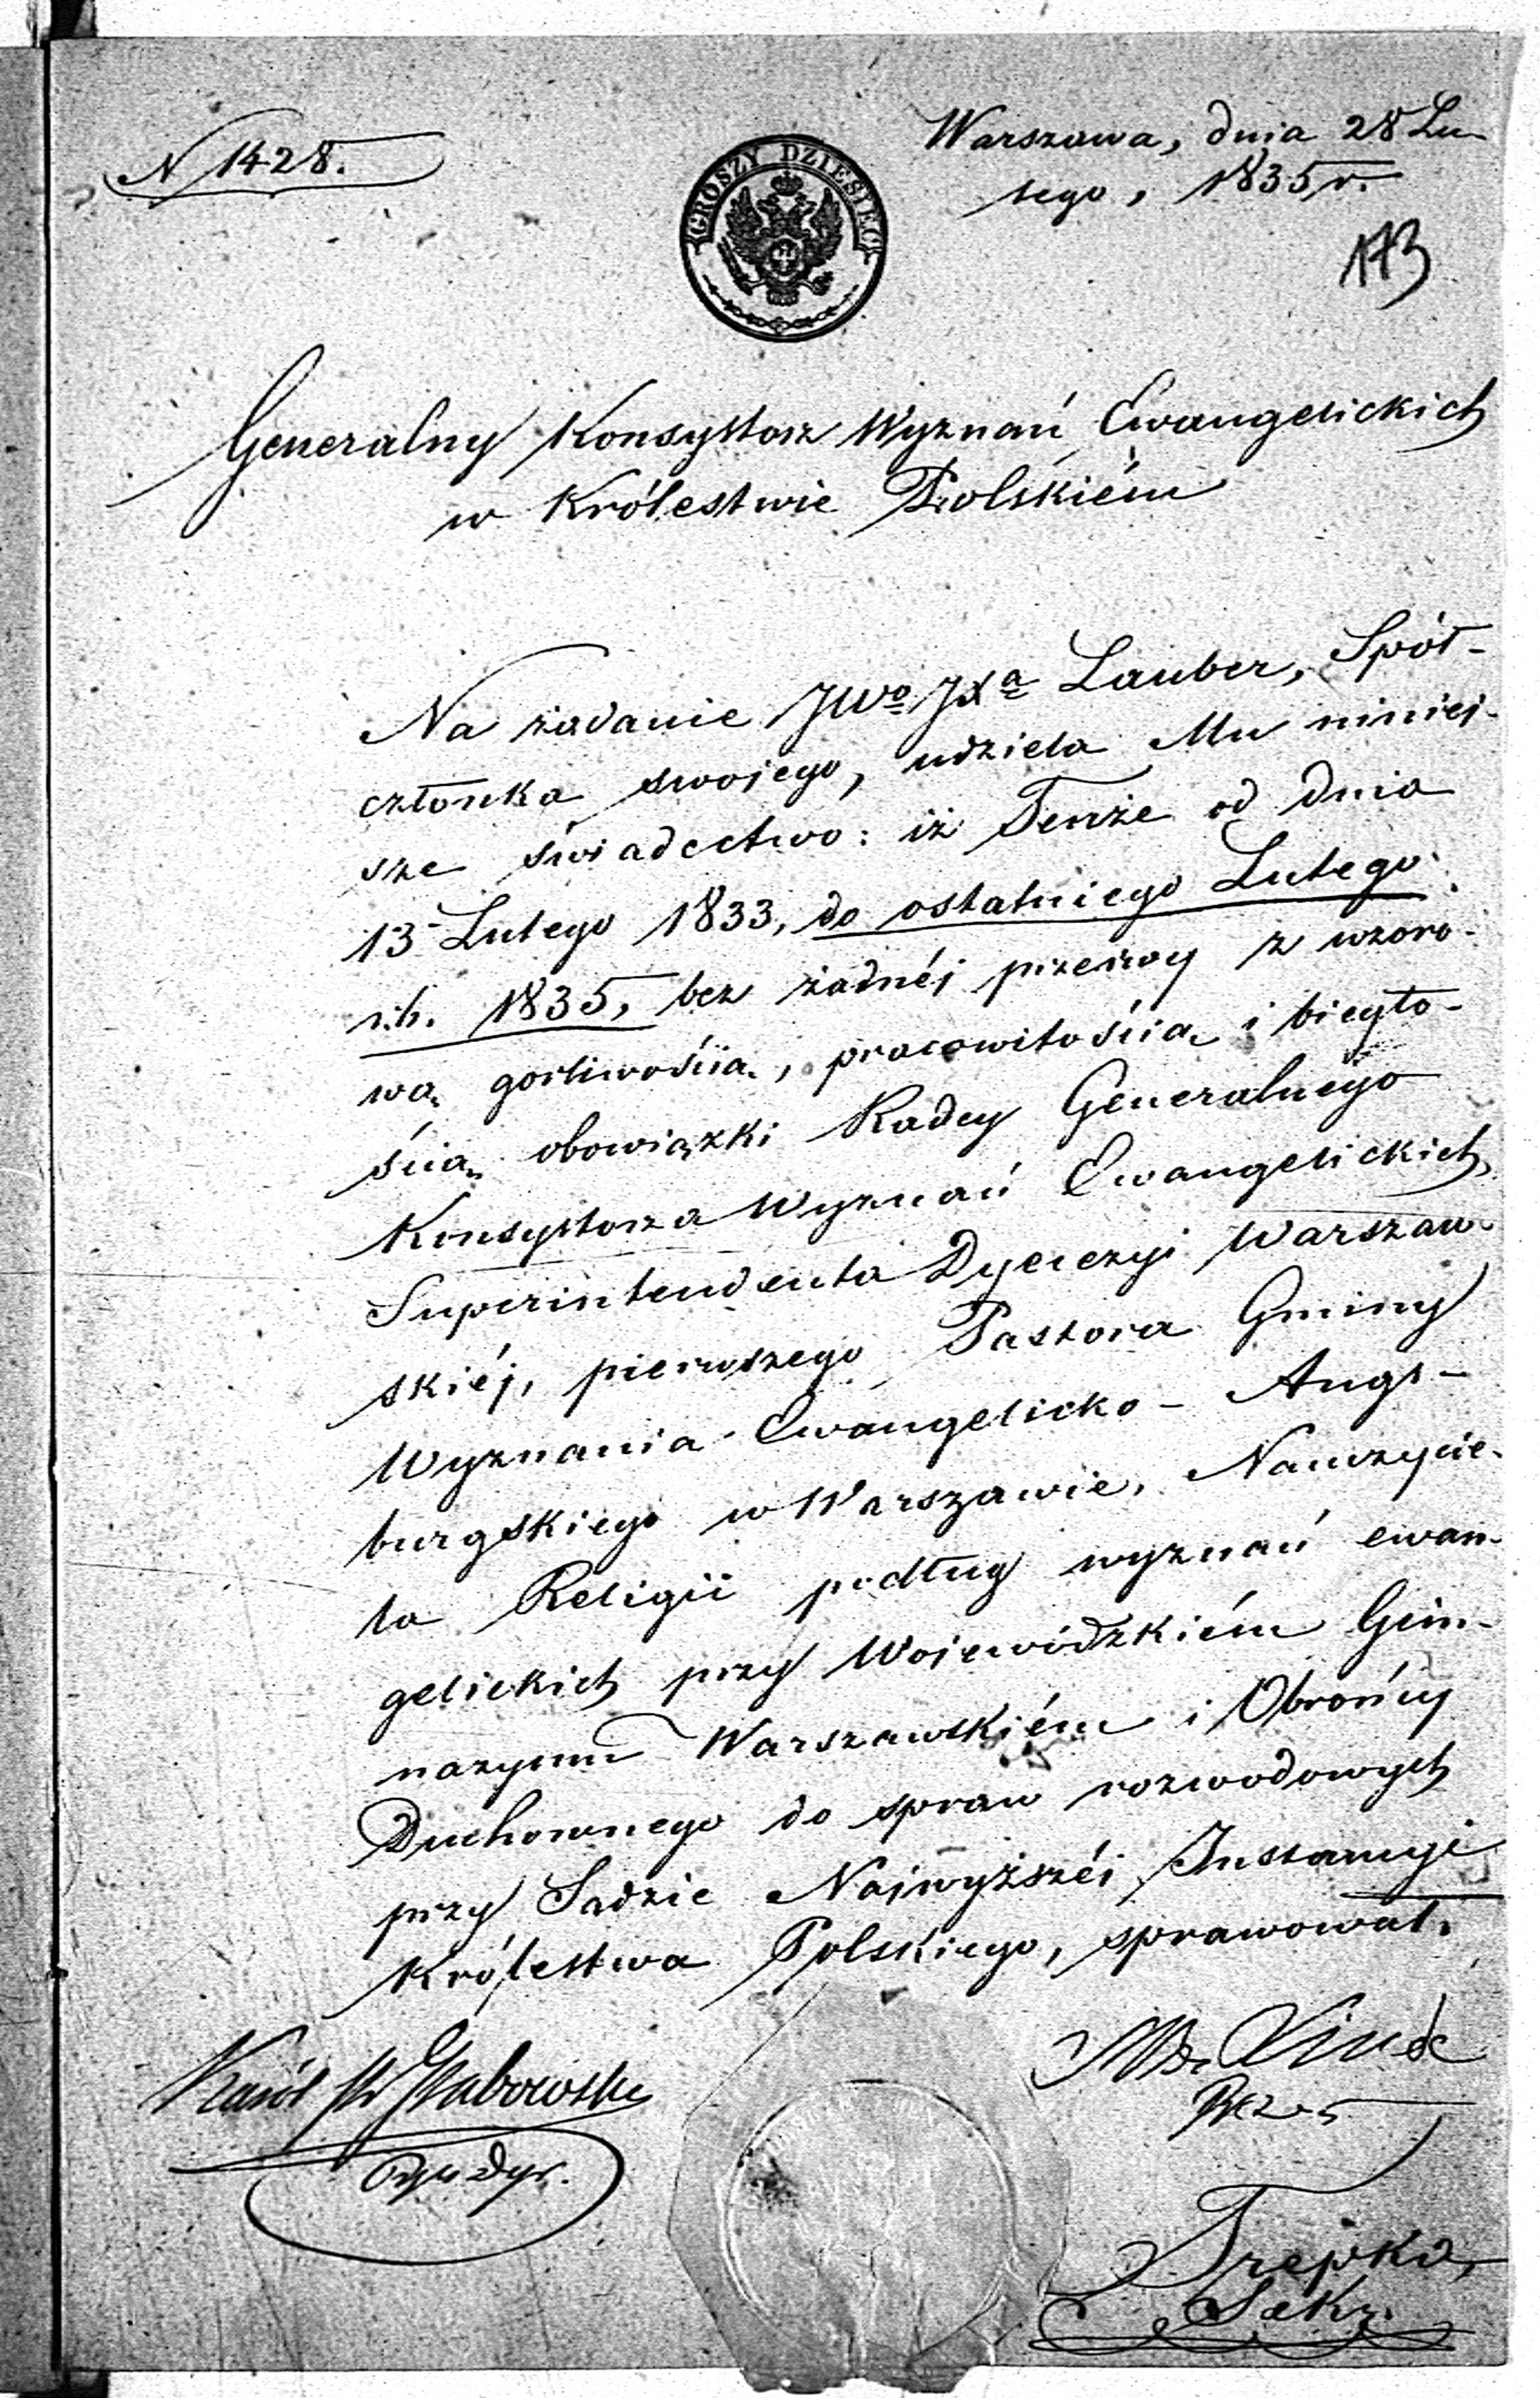 N 1428.
Warszawa, dnia 28 Lu-
tego, 1835 r.
GROSZY DZIESIĘĆ
173
Generalny Konsystorz Wyznań Ewangelickich
w Królestwie Polskiém
Na żądanie JWo JXa Lauber, Spół-
członka swojego, udziela Mu niniej-
sze świadectwo: iż Tenże od dnia
13 Lutego 1833, do ostatniego Lutego
r.b. 1835, bez żadnéj przerwy z wzoro-
wą gorliwością, pracowitością i biegło-
ścią obowiązki Radcy Generalnego
Konsystorza Wyznań Ewangelickich,
Superintendenta Dyecezyi Warszaw-
skiéj, pierwszego Pastora Gminy
Wyznania Ewangelicko - Augs-
burgskiego w Warszawie, Nauczycie-
la Religii podług wyznań ewan-
gelickich przy Wojewódzkiém Gim-
nazyum Warszawskiém i Obrońcy
Duchownego do spraw rozwodowych
przy Sądzie Najwyższéj Instancyi
Królestwa Polskiego, sprawował.
Karol Grabowski
Linde
Prezes
Trepka,
Sekr.